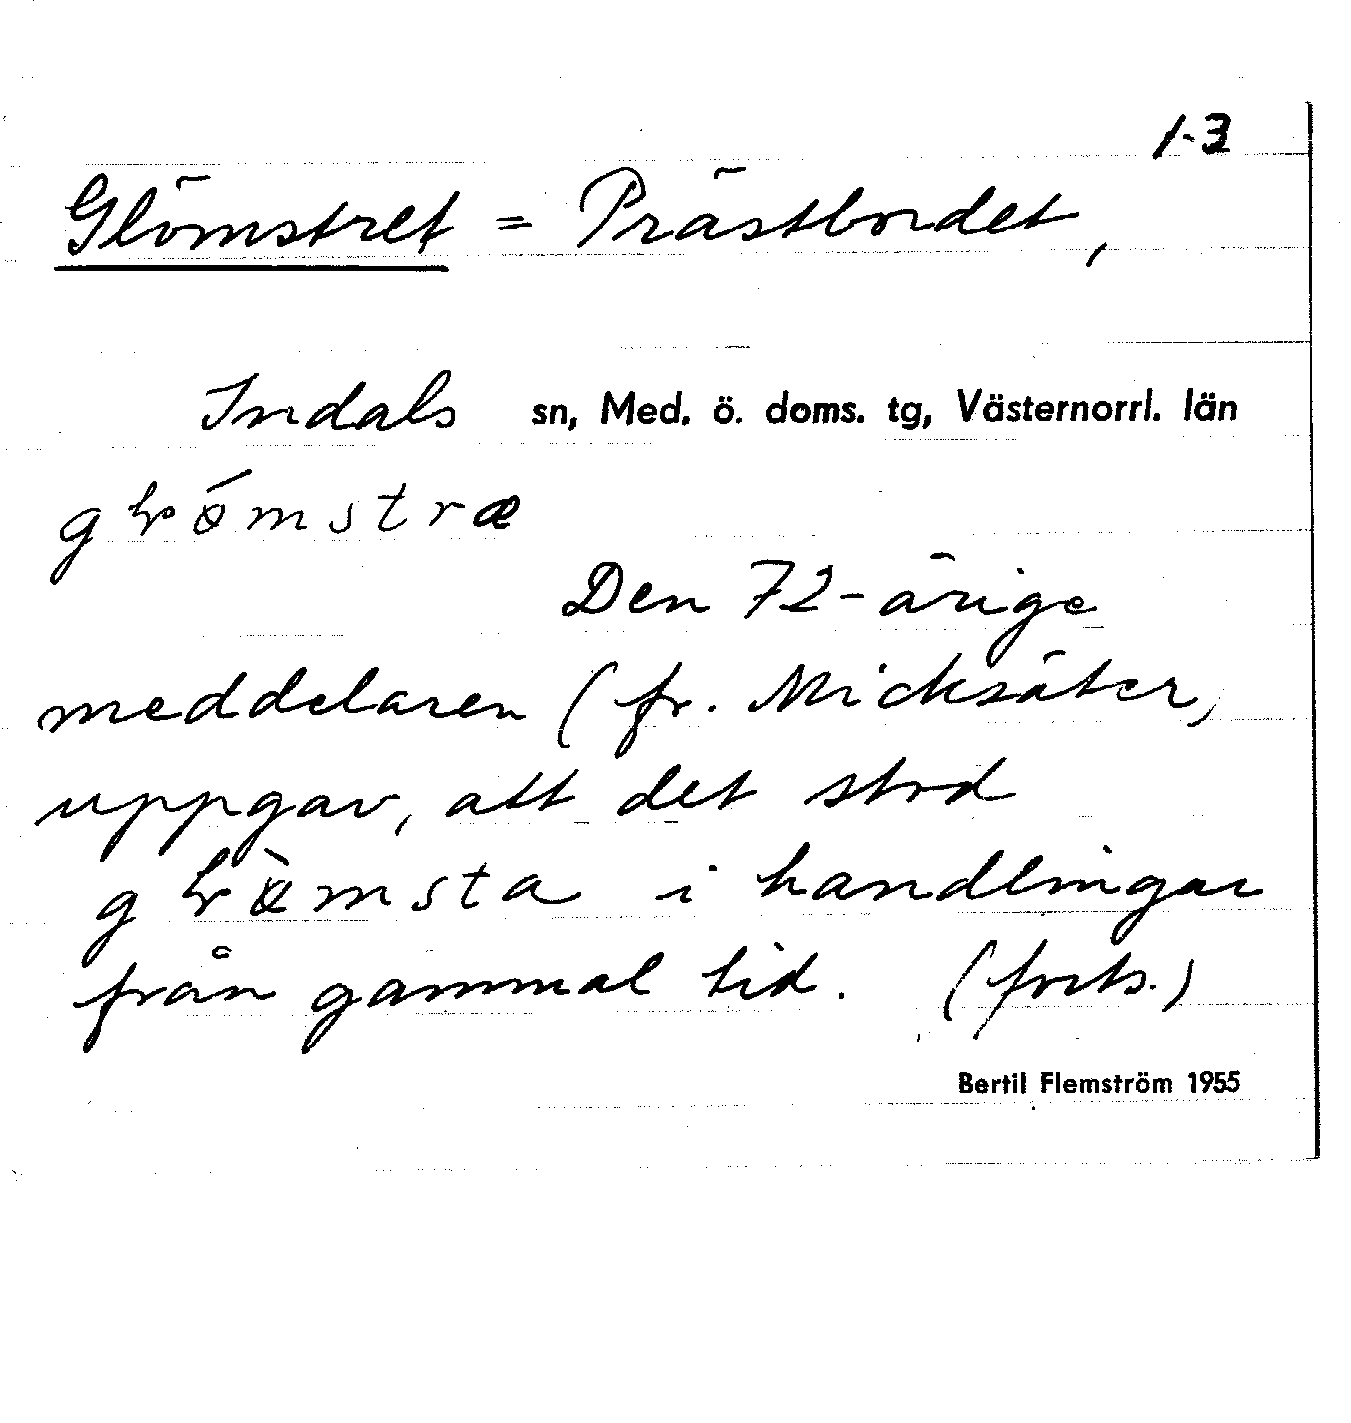 1-3
Glömstret = Prästbordet,
Indals sn, Med. ö. doms. tg, Västernorrl. län
Den 72-årige
meddelaren (fr. Micksäter,
uppgav, att det stod
i handlingar
från gammal tid. (forts.)
Bertil Flemström 1955